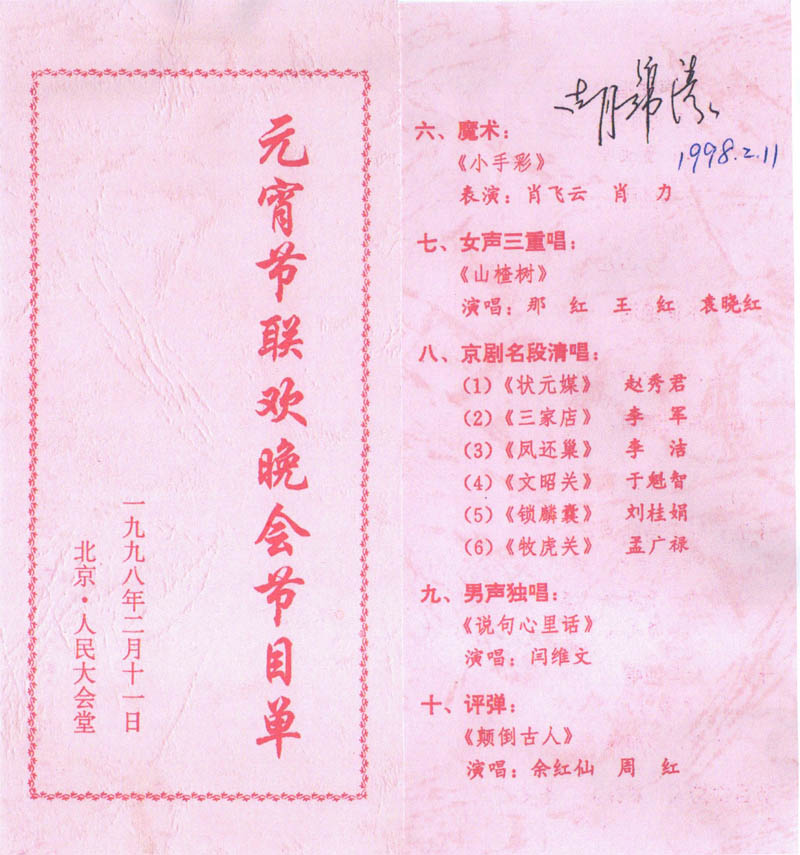 元宵节联欢晚会节目单
一九九八年二月十一日
北京·人民大会堂
胡锦涛
1998.2.11
六、魔术：
《小手彩》
表演：肖飞云 肖 力
七、女声三重唱：
《山楂树》
演唱：那 红 王 红 袁晓红
八、京剧名段清唱：
(1)《状元媒》 赵秀君
(2)《三家店》 李 军
(3)《凤还巢》 李 洁
(4)《文昭关》 于魁智
(5)《锁麟囊》 刘桂娟
(6)《牧虎关》 孟广禄
九、男声独唱：
《说句心里话》
演唱：闫维文
十、评弹：
《颠倒古人》
演唱：余红仙 周 红